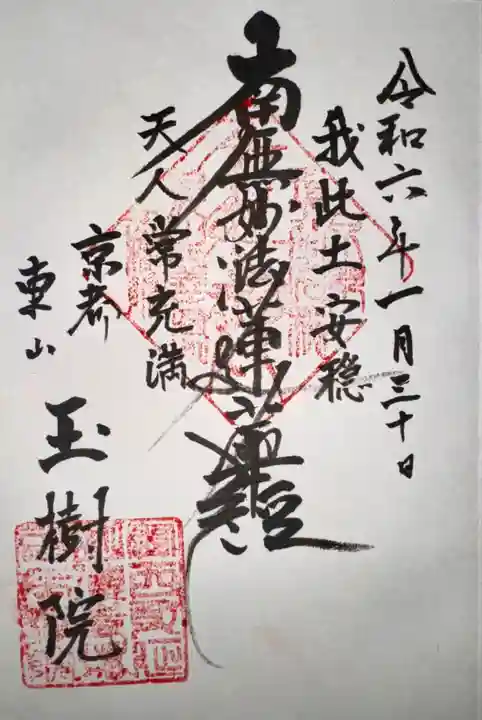 令和六年一月三十日
我此土安穏
南無妙法蓮華経
天人常充満
京都
東山
玉樹院